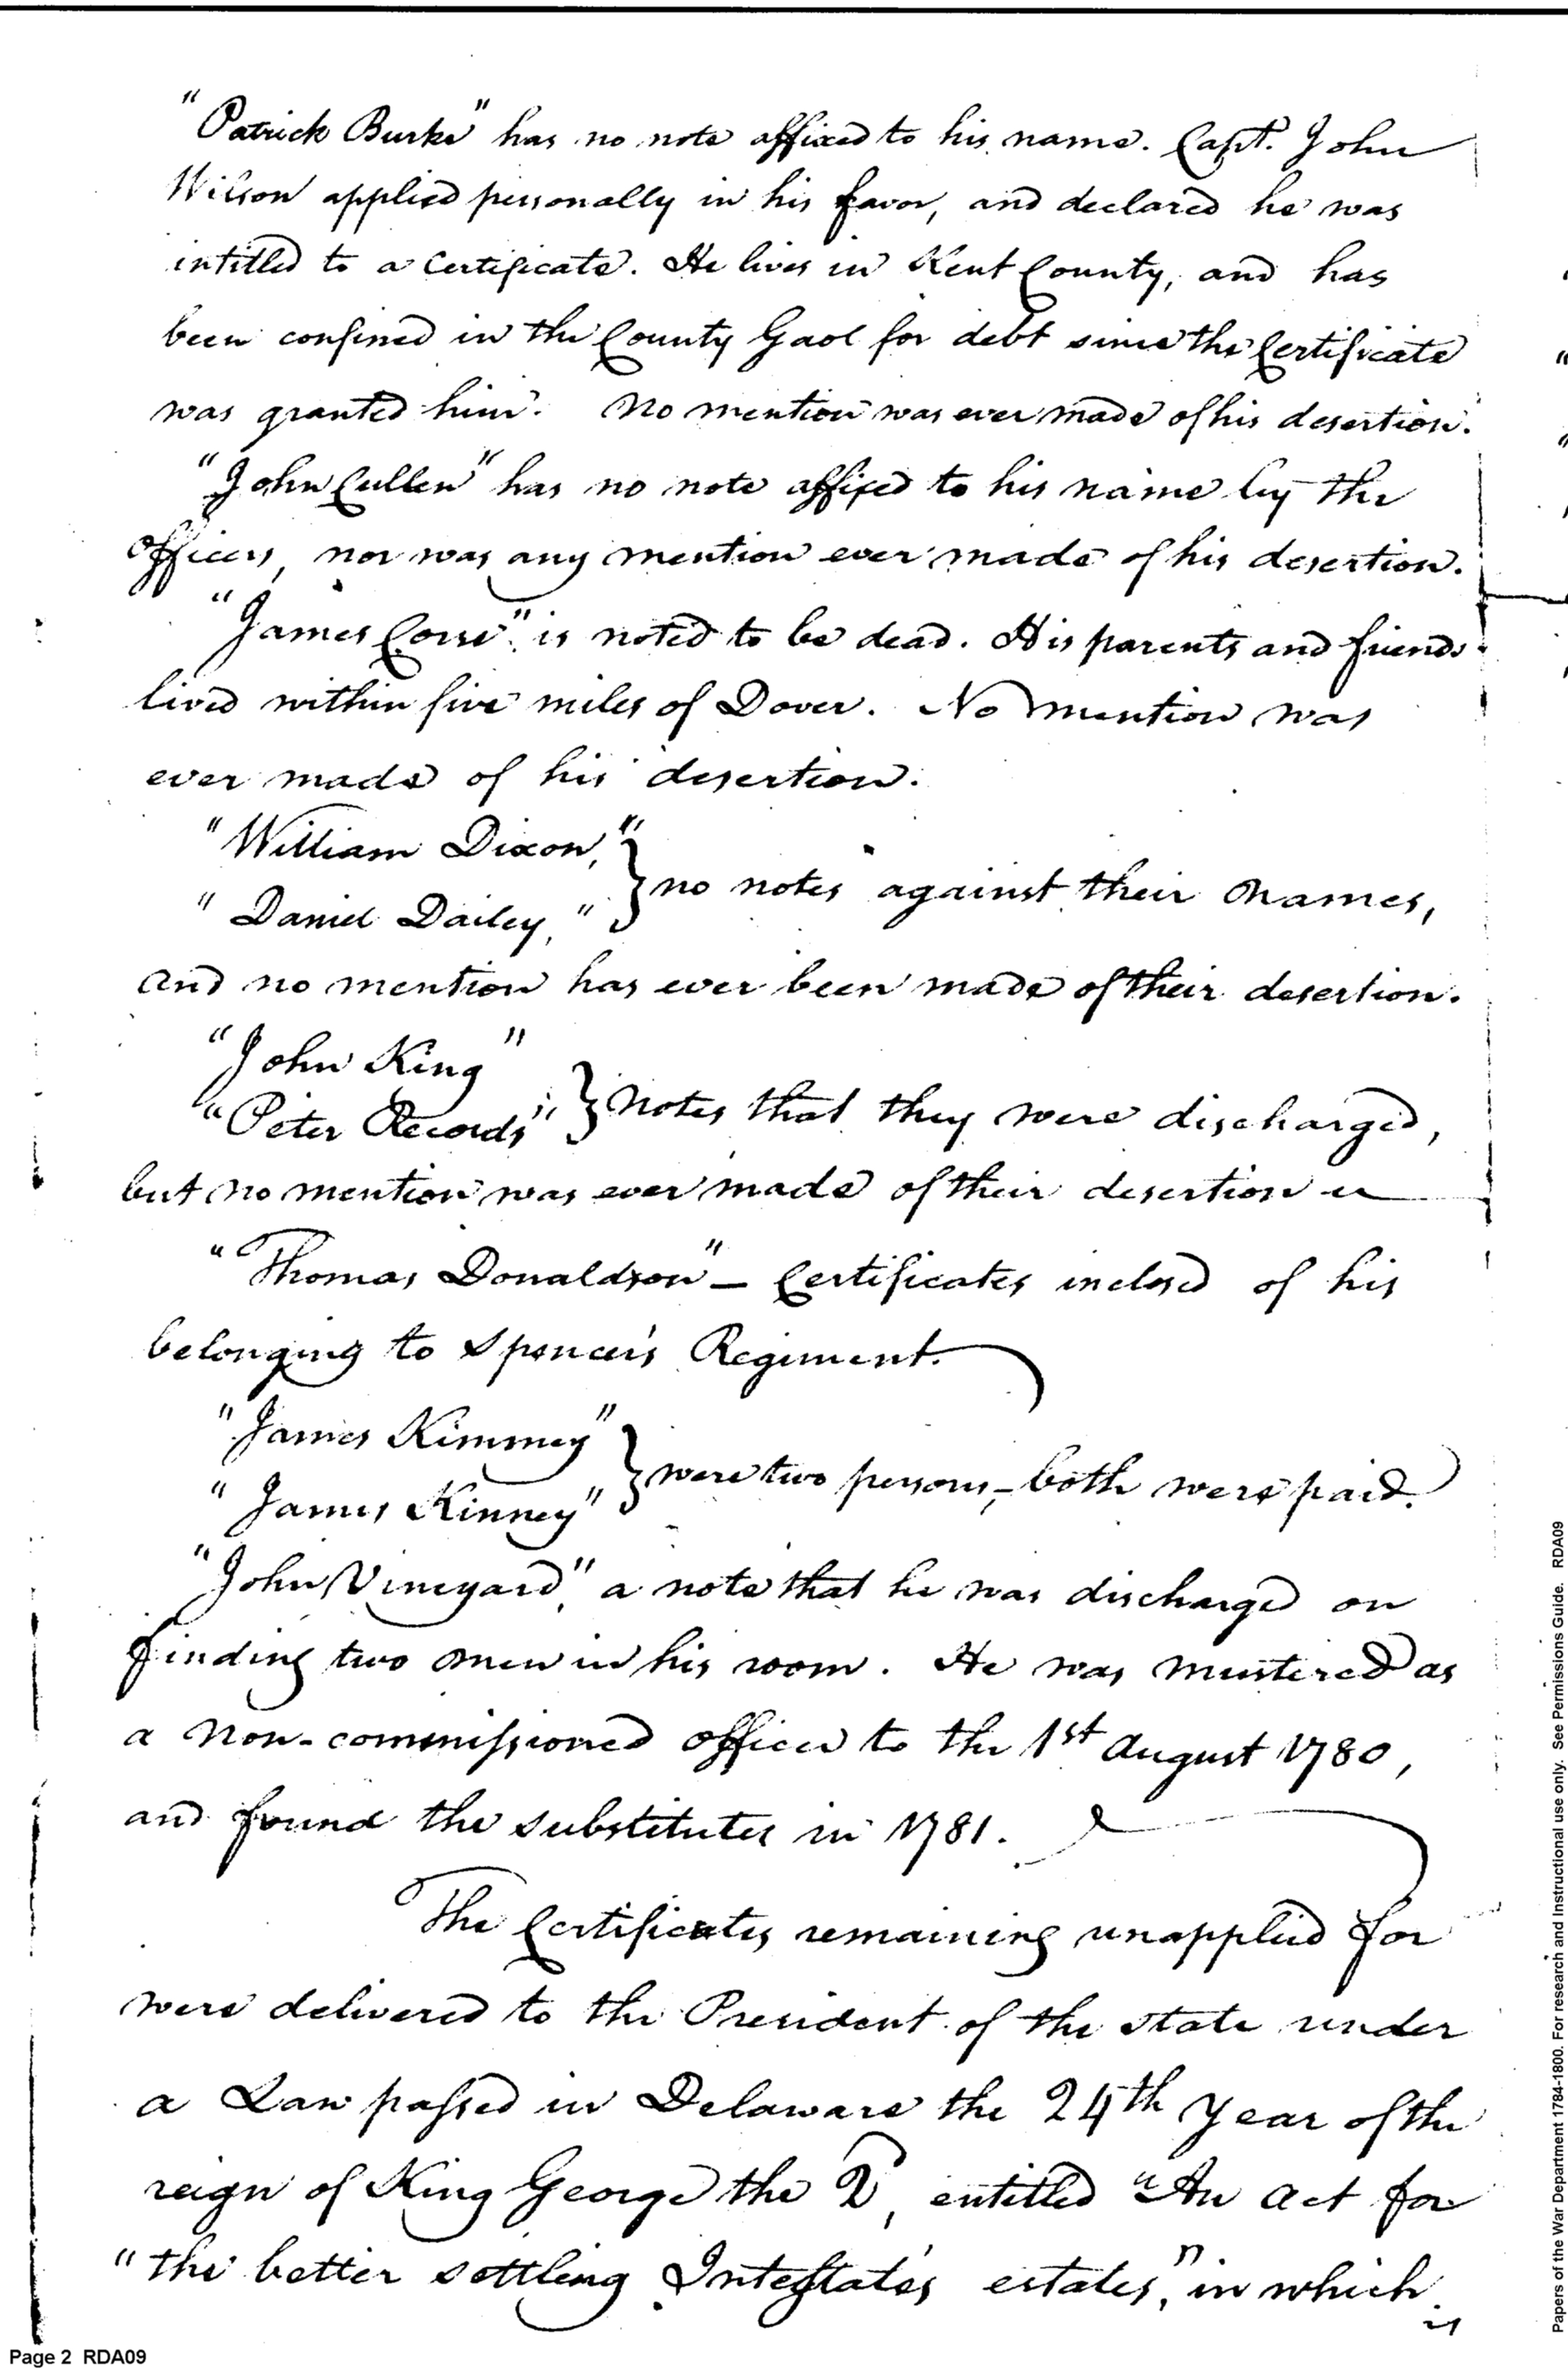 "Patrick Burke" has no note affixed to his name. Capt. John
Wilson applied personally in his favor, and declared he was
intitled to a Certificate. He lives in Kent County, and has
been confined in the County Gaol for debt since the Certificate
was granted him. No mention was ever made of his desertion.
"John Cullen" has no note affixed to his name by the
officers, nor was any mention ever made of his desertion.
"James Corse" is noted to be dead. His parents and friends
lived within five miles of Dover. No mention was
ever made of his desertion.
"William Dixon,"
"Daniel Dailey," } no notes against their names,
and no mention has ever been made of their desertion.
"John King"
"Peter Records" } notes that they were discharged,
but no mention was ever made of their desertion
"Thomas Donaldson" – Certificates inclosed of his
belonging to Spencer's Regiment.
"James Kimmey"
"James Kinney" } were two persons, – both were paid.
"John Vineyard," a note that he was discharged on
finding two men in his room. He was mustered as
a non-commissioned officer to the 1st August 1780,
and found the substitutes in 1781.
The Certificates remaining unapplied for
were delivered to the President of the state under
a Law passed in Delaware the 24th year of the
reign of King George the 2d, entitled "An act for
"the better settling Intestate's estates," in which
Page 2 RDA09
Papers of the War Department 1784-1800. For research and Instructional use only. See Permissions Guide. RDA09